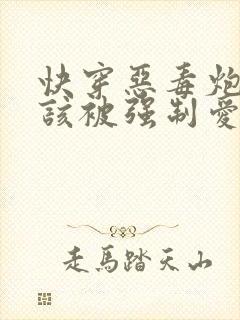 快穿惡毒炮
該被强制愛
走馬踏天山